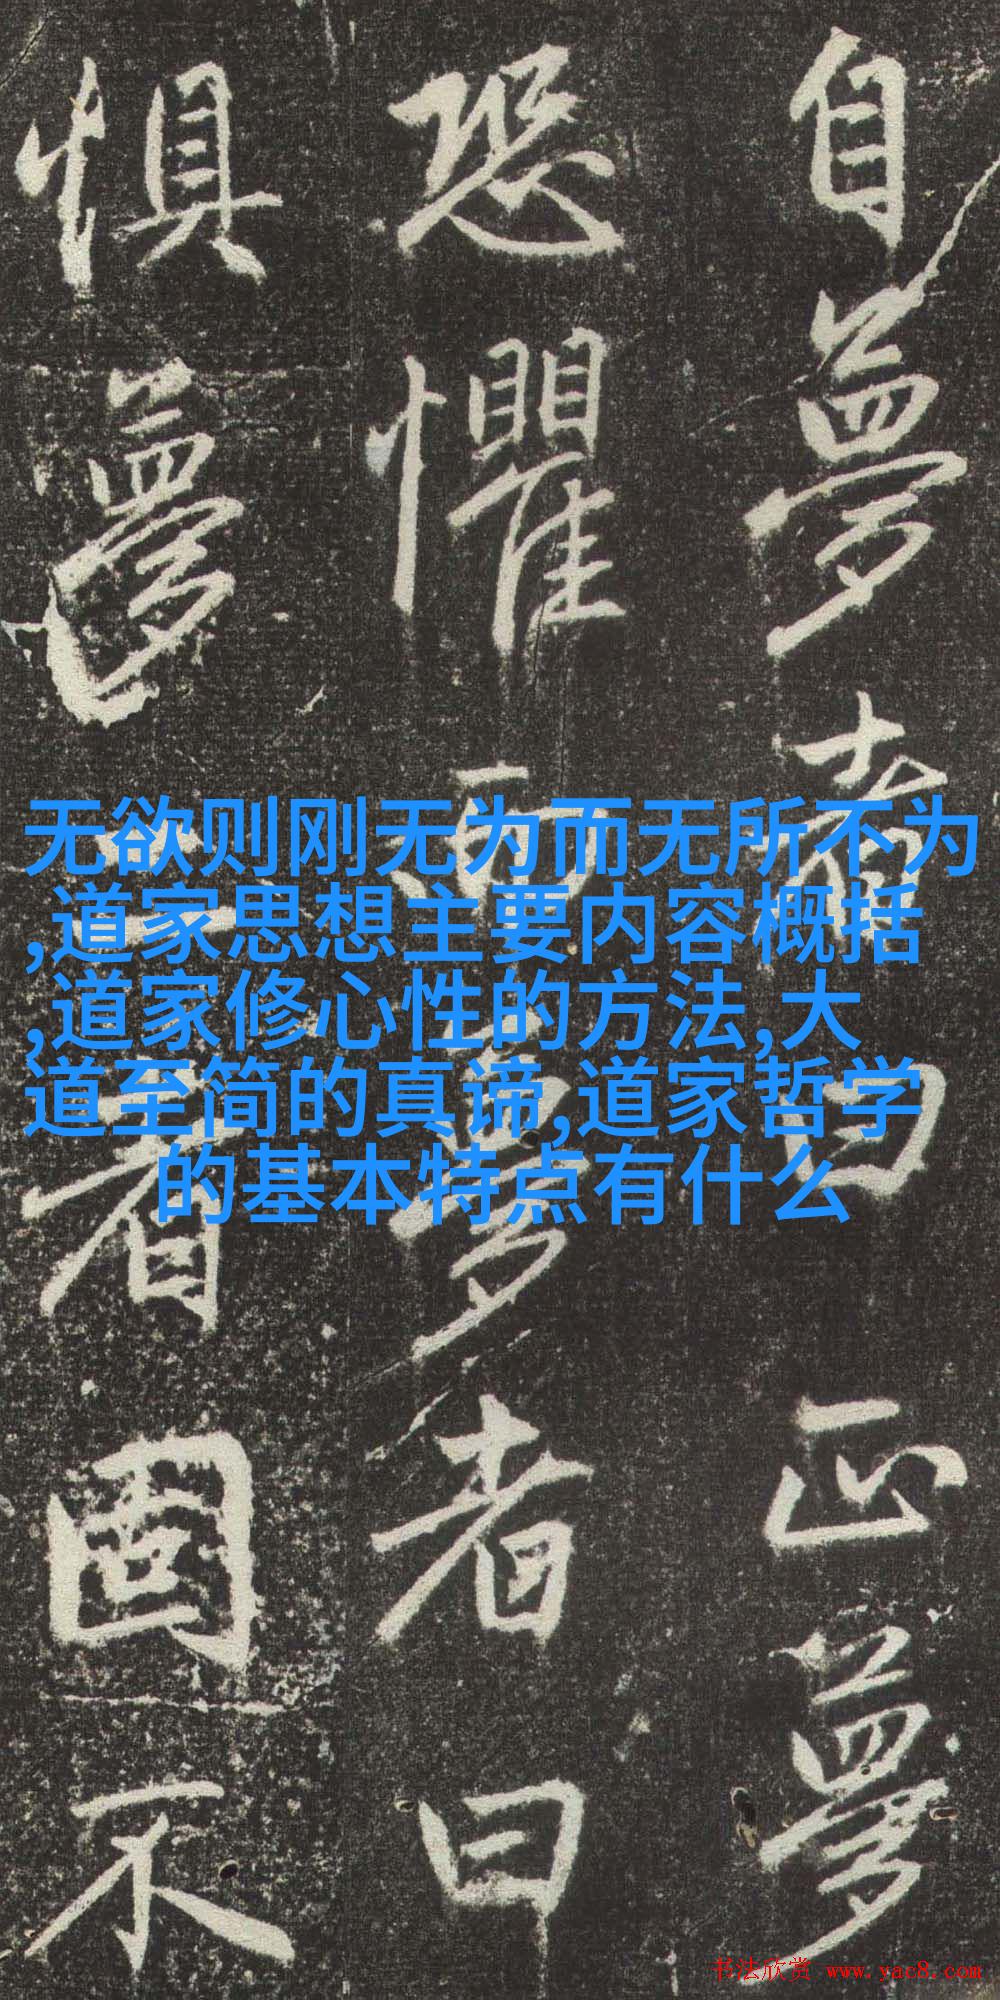 自夢者曰正夢
恐懼而夢者曰
惧夢二者固不
无欲则刚无为而无所不为
,道家思想主要内容概括
,道家修心性的方法,大
道至简的真谛,道家哲学
的基本特点有什么
书法欣赏 www.yac8.com